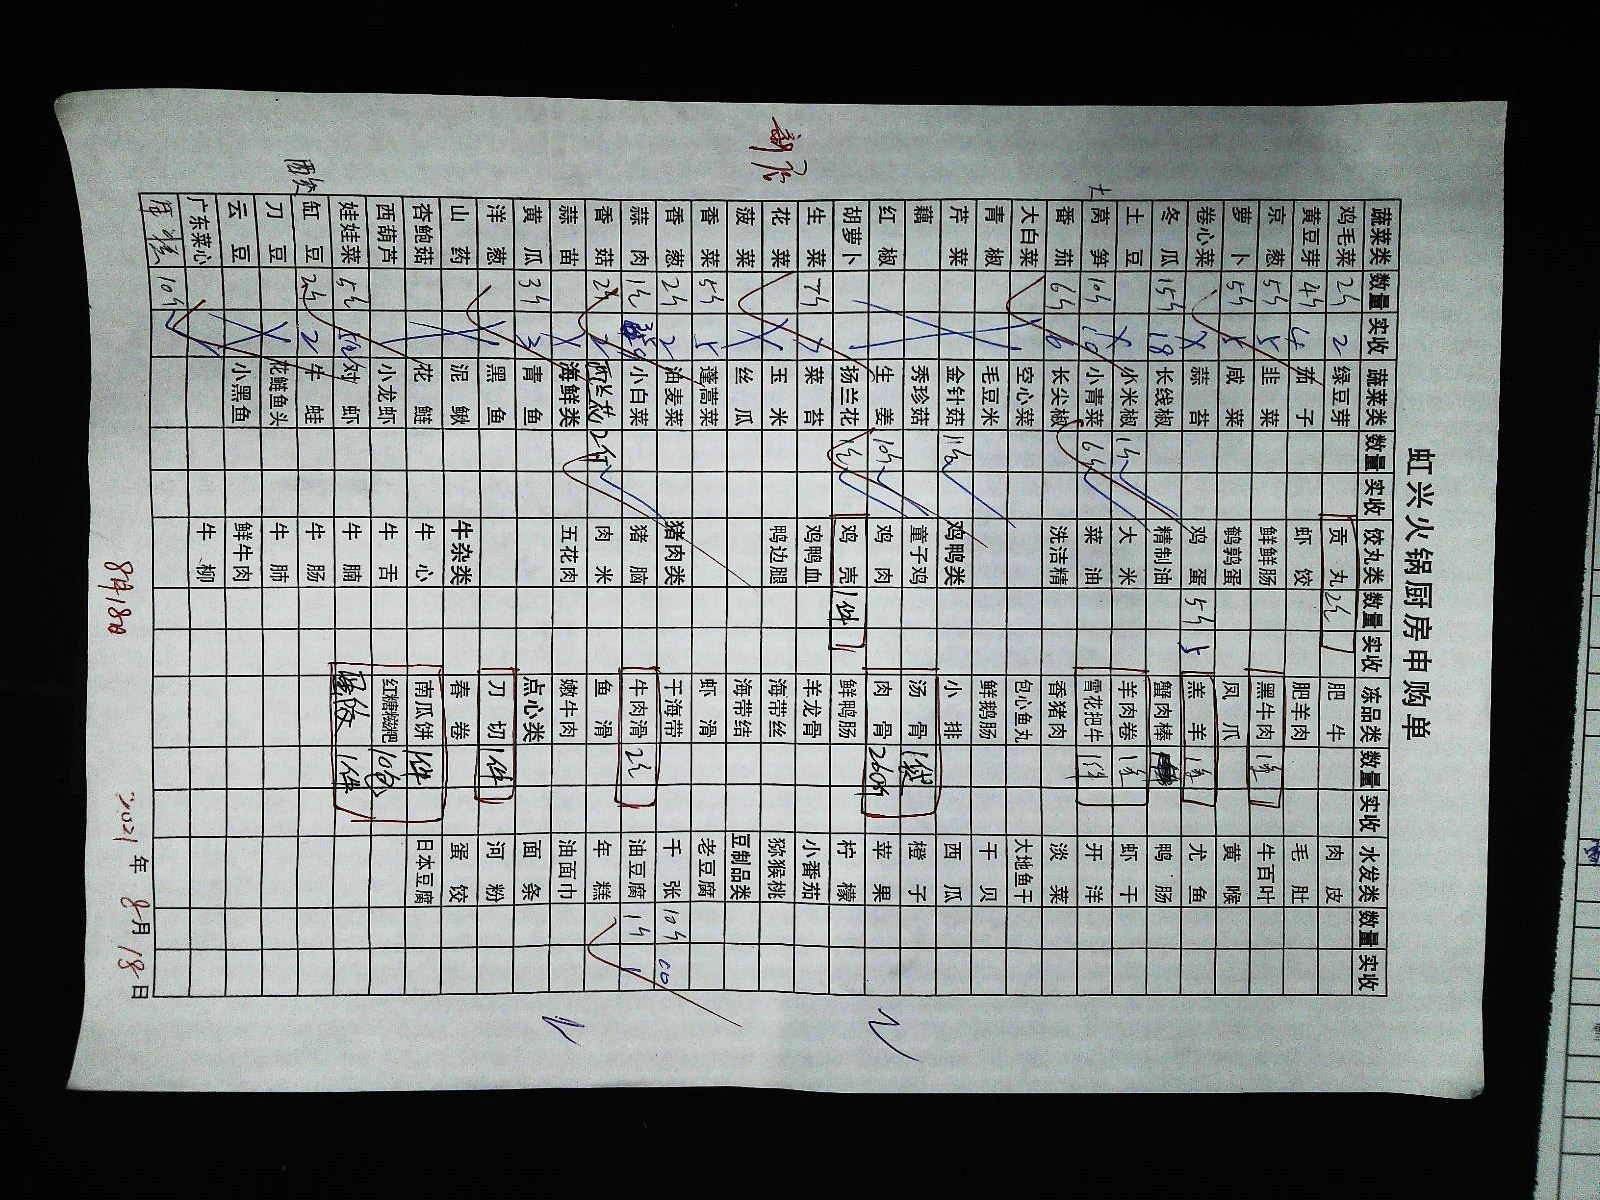 新店
虹兴火锅厨房申购单
蔬菜类 数量 实收 蔬菜类 数量 实收 饺丸类 数量 实收 冻品类 数量 实收 水发类 数量 实收
鸡毛菜 2斤 2 绿豆芽 贡丸 2斤 肥牛 肉皮
黄豆芽 4斤 4 茄子 虾饺 肥羊肉 毛肚
京葱 5斤 5 韭菜 鲜鲜肠 黑牛肉 1条 牛百叶
萝卜 5斤 5 咸菜 鹌鹑蛋 凤爪 黄喉
卷心菜 蒜苔 鸡蛋 5斤 5 羔羊 1条 尤鱼
冬瓜 15斤 18 长线椒 精制油 蟹肉棒 鸭肠
土豆 小米椒 1斤 大米 羊肉卷 1条 虾干
莴笋 10斤 10 小青菜 6斤 菜油 雪花把牛 1件 开洋
番茄 6斤 6 长尖椒 洗洁精 香猪肉 淡菜
大白菜 空心菜 包心鱼丸 大地鱼干
青椒 毛豆米 鲜鹅肠 干贝
芹菜 金针菇 11包 鸡鸭类 小排 西瓜
藕 秀珍菇 童子鸡 汤骨 1袋 橙子
红椒 生姜 10斤 鸡肉 肉骨 260斤 苹果
胡萝卜 扬兰花 1斤 鸡壳 1件 鲜鸭肠 柠檬
生菜 7斤 7 菜苔 鸡鸭血 羊龙骨 小番茄
花菜 玉米 鸭边腿 海带丝 猕猴桃
菠菜 丝瓜 海带结 豆制品类
香菜 5斤 5 蓬蒿菜 虾滑 老豆腐
香葱 2斤 2 油麦菜 猪肉类 干海带 千张 10斤 10
蒜肉 1包 小白菜 猪脑 牛肉滑 2斤 油豆腐 1斤 1
香菇 2斤 2 西兰花 2斤 肉米 鱼滑 年糕
蒜苗 海鲜类 五花肉 嫩牛肉 油面巾
黄瓜 3斤 3 青鱼 点心类 面条
洋葱 黑鱼 刀切 1件 河粉
山药 泥鳅 牛杂类 春卷 蛋饺
杏鲍菇 花鲢 牛心 南瓜饼 1件 日本豆腐
西葫芦 小龙虾 牛舌 红糖糍粑 10包
娃娃菜 5斤 对虾 牛腩 1件
缸豆 2斤 2 牛蛙 牛肠
刀豆 花鲢鱼头 牛肺
云豆 小黑鱼 鲜牛肉
广东菜心 牛柳
10斤
8月18日
2021年8月18日